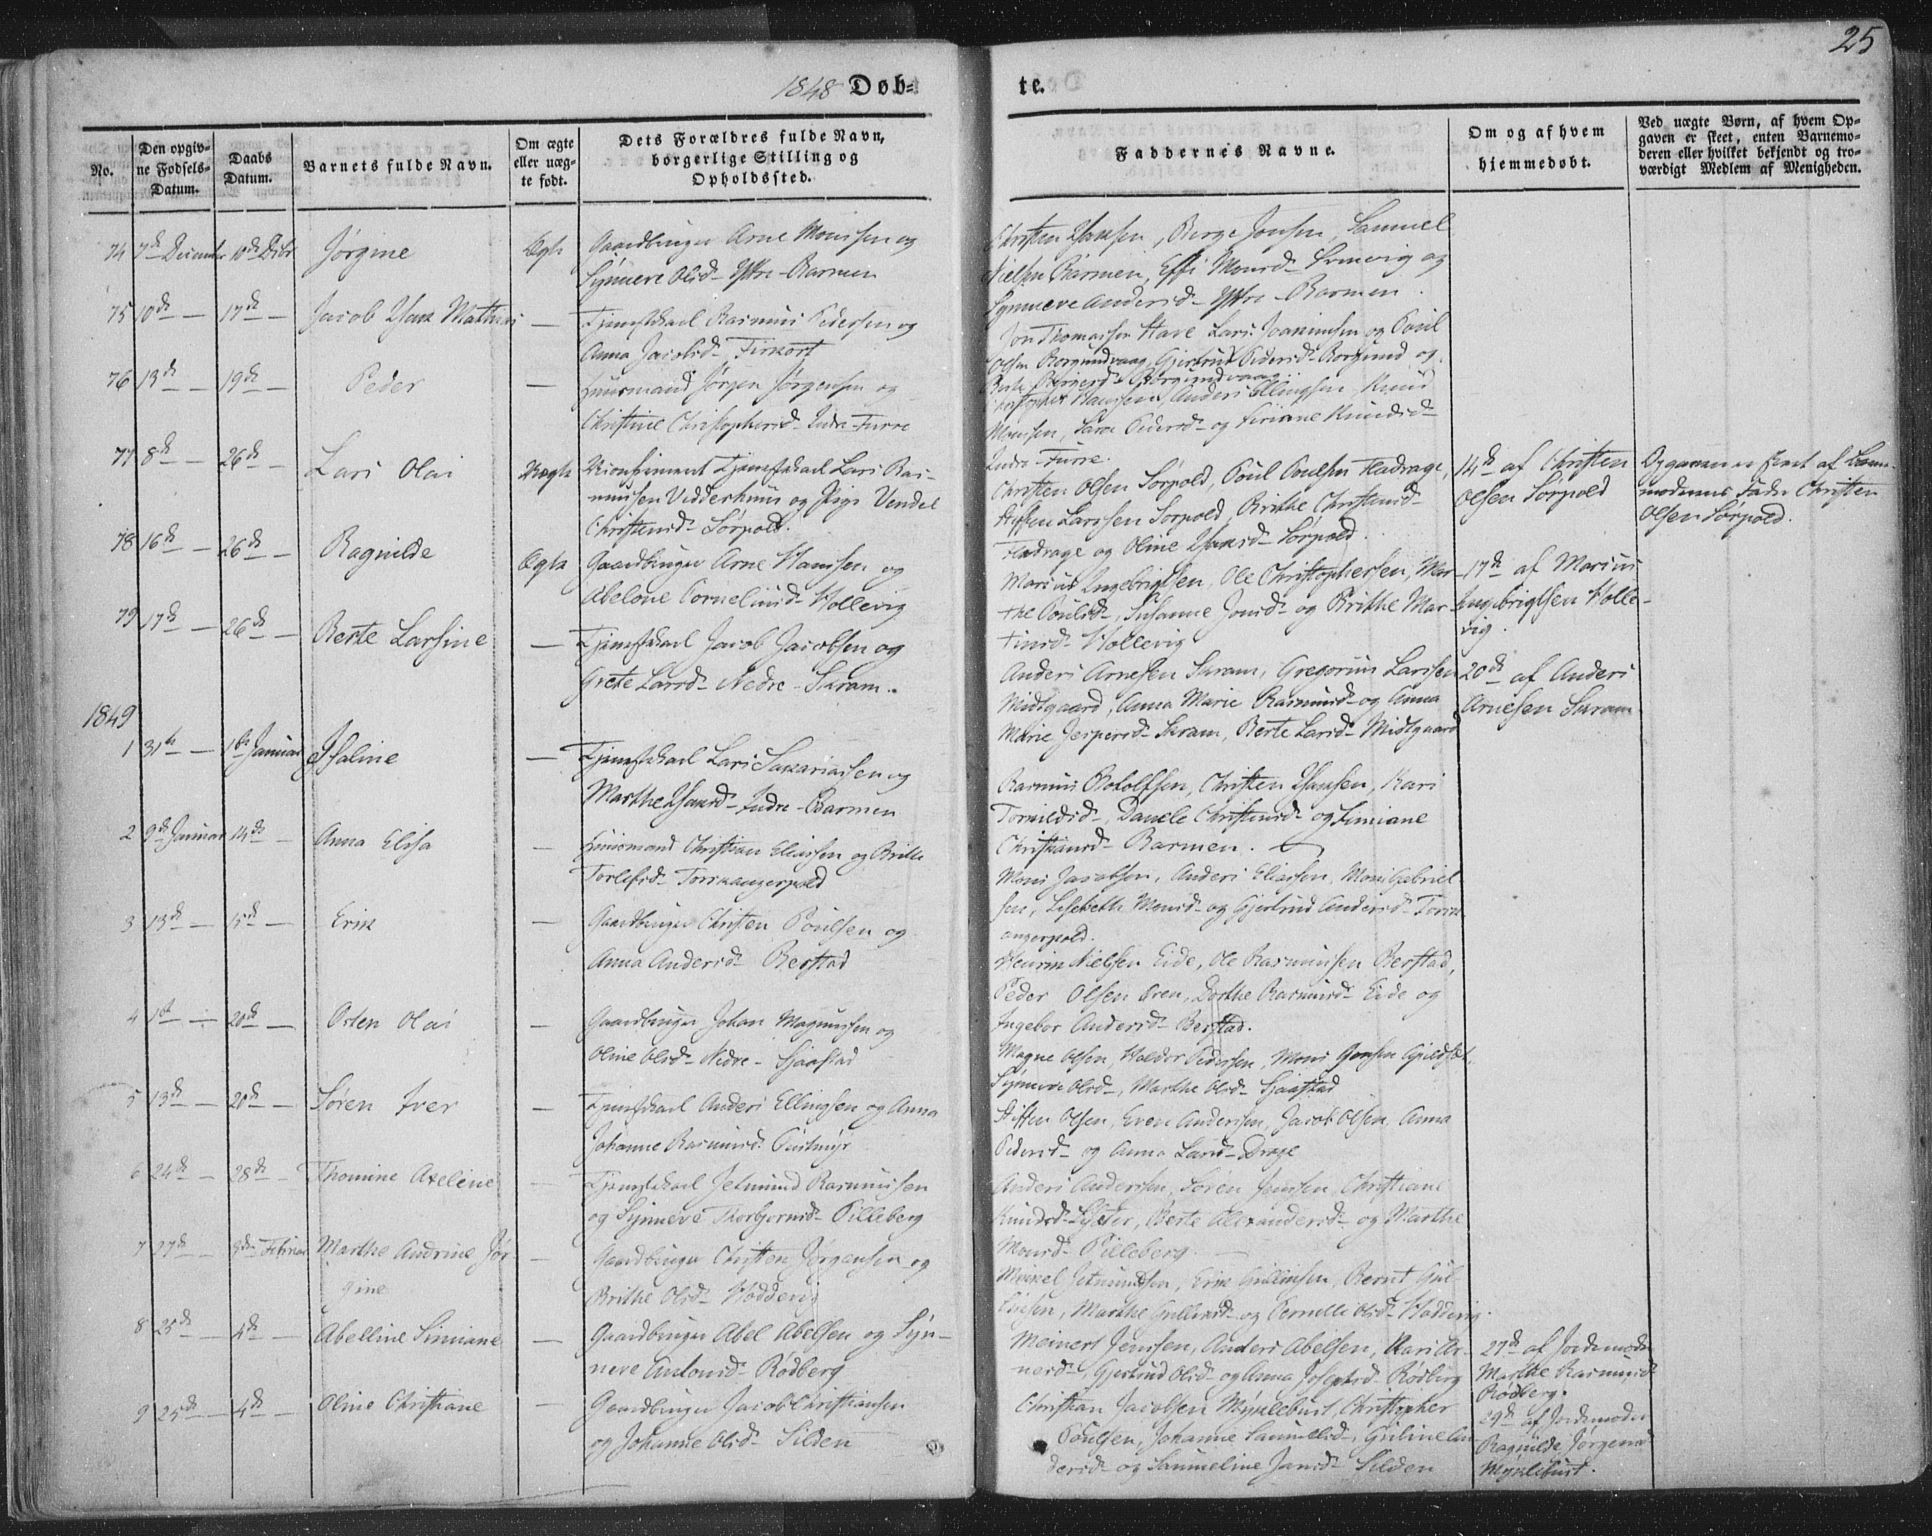 25
1848 Døb-
te.
No.
Den opgiv-
ne Fødsels-
Datum.
Daabs
Datum.
Barnets fulde Navn.
Om ægte
eller uæg-
te født.
Dets Forældres fulde Navn,
borgerlige Stilling og
Opholdssted.
Faddernes Navne.
Om og af hvem
hjemmedøbt.
Ved uægte Børn, af hvem Op-
gaven er skeet, enten Barnemo-
deren eller hvilket bekjendt og tro-
værdigt Medlem af Menigheden.
74 7de December 10de Dcbr Jørgine Ægte Gaardbruger Arne Monssen og
Synneve Olsd- Ytre-Barmen
Christen Hansen, Børge Jonsen, Samuel
Nielsen Barmen, Effi Monsd- og
Synneve Andersd- Ytre-Barmen.
75 10de — 17de — Jacob Hans Mathias — Tjenestekarl Rasmus Pedersen og
Anna Jacobsd-
Jon Thomassen Have Lars Joanimsen og Poul
Olsen Borgundvaag, Gjertrud Pedersd- Borgund og
Borgundvaag.
76 13de — 19de — Peder — Huusmand Jørgen Jørgensen og
Christine Christophersd- Indre-Furre
Christopher Hansen, Anders Ellingsen, Knud
Monsen, Pedersd- og Knudsd-
Indre-Furre.
77 8de — 26de — Lars Olai Uægte Tjenestekarl Lars Ras-
mussen Vedderhuus og Pige Vendel
Christensd- Sørpold.
Christen Olsen Sørpold, Poul Poulsen Fladrage,
Steffen Larssen Sørpold, Brithe Christensd-
Fladrage og Oline Hansd- Sørpold.
14de af Christen
Olsen Sørpold
Opgaven er skeet af Barne-
moderens Fader Christen
Olsen Sørpold.
78 16de — 26de — Ragnilde Ægte Gaardbruger Arne Hanssen og
Abelone Corneliusd- Hollevig
Marius Engebrigtsen, Ole Christophersen, Mar-
the Poulsd-, Susanne Jonsd- og Brithe Mar-
tinsd- Hollevig
17de af Marius
Engebrigtsen Holle-
vig.
79 17de — 26de — Berte Larsine — Tjenestekarl Jacob Jacobsen og
Grete Larsd- Nedre-Skram.
Anders Arnesen Skram, Gregorius Larssen
Midtgaard, Anna Marie Rasmusd- og Anna
Marie Jespersd- Skram, Berte Larsd- Midtgaard
20de af Anders
Arnesen Skram
1849
1 31te — 1te Januar — Tjenestekarl Lars Sakariassen og
Marthe Hansd- Indre-Barmen
Rasmus Rotolfsen, Christen Hansen, Kari
Tornildsd-, Danele Christensd- og Simiane
Christiansd- Barmen.
2 9de Januar 14de — Anna Elisa — Huusmand Christian Eliassen og Brithe
Torlefsd-
Mons Jacobsen, Anders Eliassen, Mons Gabriel-
sen, Lisebeth Monsd- og Gjertrud Andersd-
3 13de — 15de — Erik — Gaardbruger Christen Poulsen og
Anna Andersd- Berstad
Henrik Nielsen Eide, Ole Rasmussen Berstad,
Peder Olsen Eren, Dorthe Rasmusd- Eide og
Ingebor Andersd- Berstad.
4 1te — 20de — Osten Olai — Gaardbruger Johan Magnussen og
Oline Olsd- Nedre-Sjaastad
Magne Olsen, Haldor Pedersen, Mons Jonsen
Synneve Olsd-, Marthe Olsd- Sjaastad
5 13de — 20de — Søren Iver — Tjenestekarl Anders Ellingsen og Anna
Johanne Rasmusd-
Steffen Olsen, Even Andersen, Jacob Olsen, Anna
Pedersd- og Anna Larsd- Drage
6 24de — 28de — Thomine Axeline — Tjenestekarl Jetmund Rasmussen
og Synneve Thorbjørnsd- Pilleberg
Anders Andersen, Søren Jenssen, Christiane
Knudsd- Berte Alexandersd- og Marthe
Monsd- Pilleberg
7 27de — 3de Februar Marthe Andrine Jør-
gine — Gaardbruger Christen Jørgensen og
Brithe Olsd- Hoddevig
Mikkel Jetmundsen, Erik Gulliksen, Bernt Gul-
liksen, Marthe Gulliksd- og Pernelle Olsd- Hoddevig.
8 25de — 4de — Abelline Simiane — Gaardbruger Abel Abelsen og Syn-
neve Antonsd- Rødberg
Meinert Jenssen, Anders Abelsen, Kari Ar-
nesd-, Gjertrud Olsd- og Anna Josephsd- Rødberg
27de af Jordemoder
Marthe Rasmusd-
Rødberg.
9 25de — 4de — Oline Christiane — Gaardbruger Jacob Christiansen
og Johanne Olsd- Silden
Christian Jacobsen Myklebust, Christopher
Poulsen, Johanne Samuelsd-, Guline An-
dersd- og Sammeline Jansd- Silden
29de af Jordemoder
Ragnilde Jørgensd-
Myklebust.